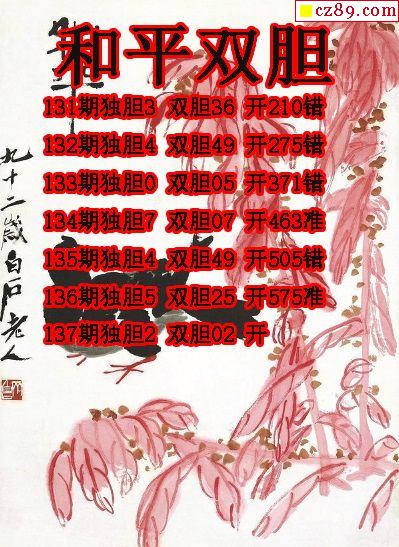 cz89.com
和平双胆
131期独胆3 双胆36 开210错
132期独胆4 双胆49 开275错
133期独胆0 双胆05 开371错
134期独胆7 双胆07 开463准
135期独胆4 双胆49 开505错
136期独胆5 双胆25 开575准
137期独胆2 双胆02 开
九十二岁白石老人